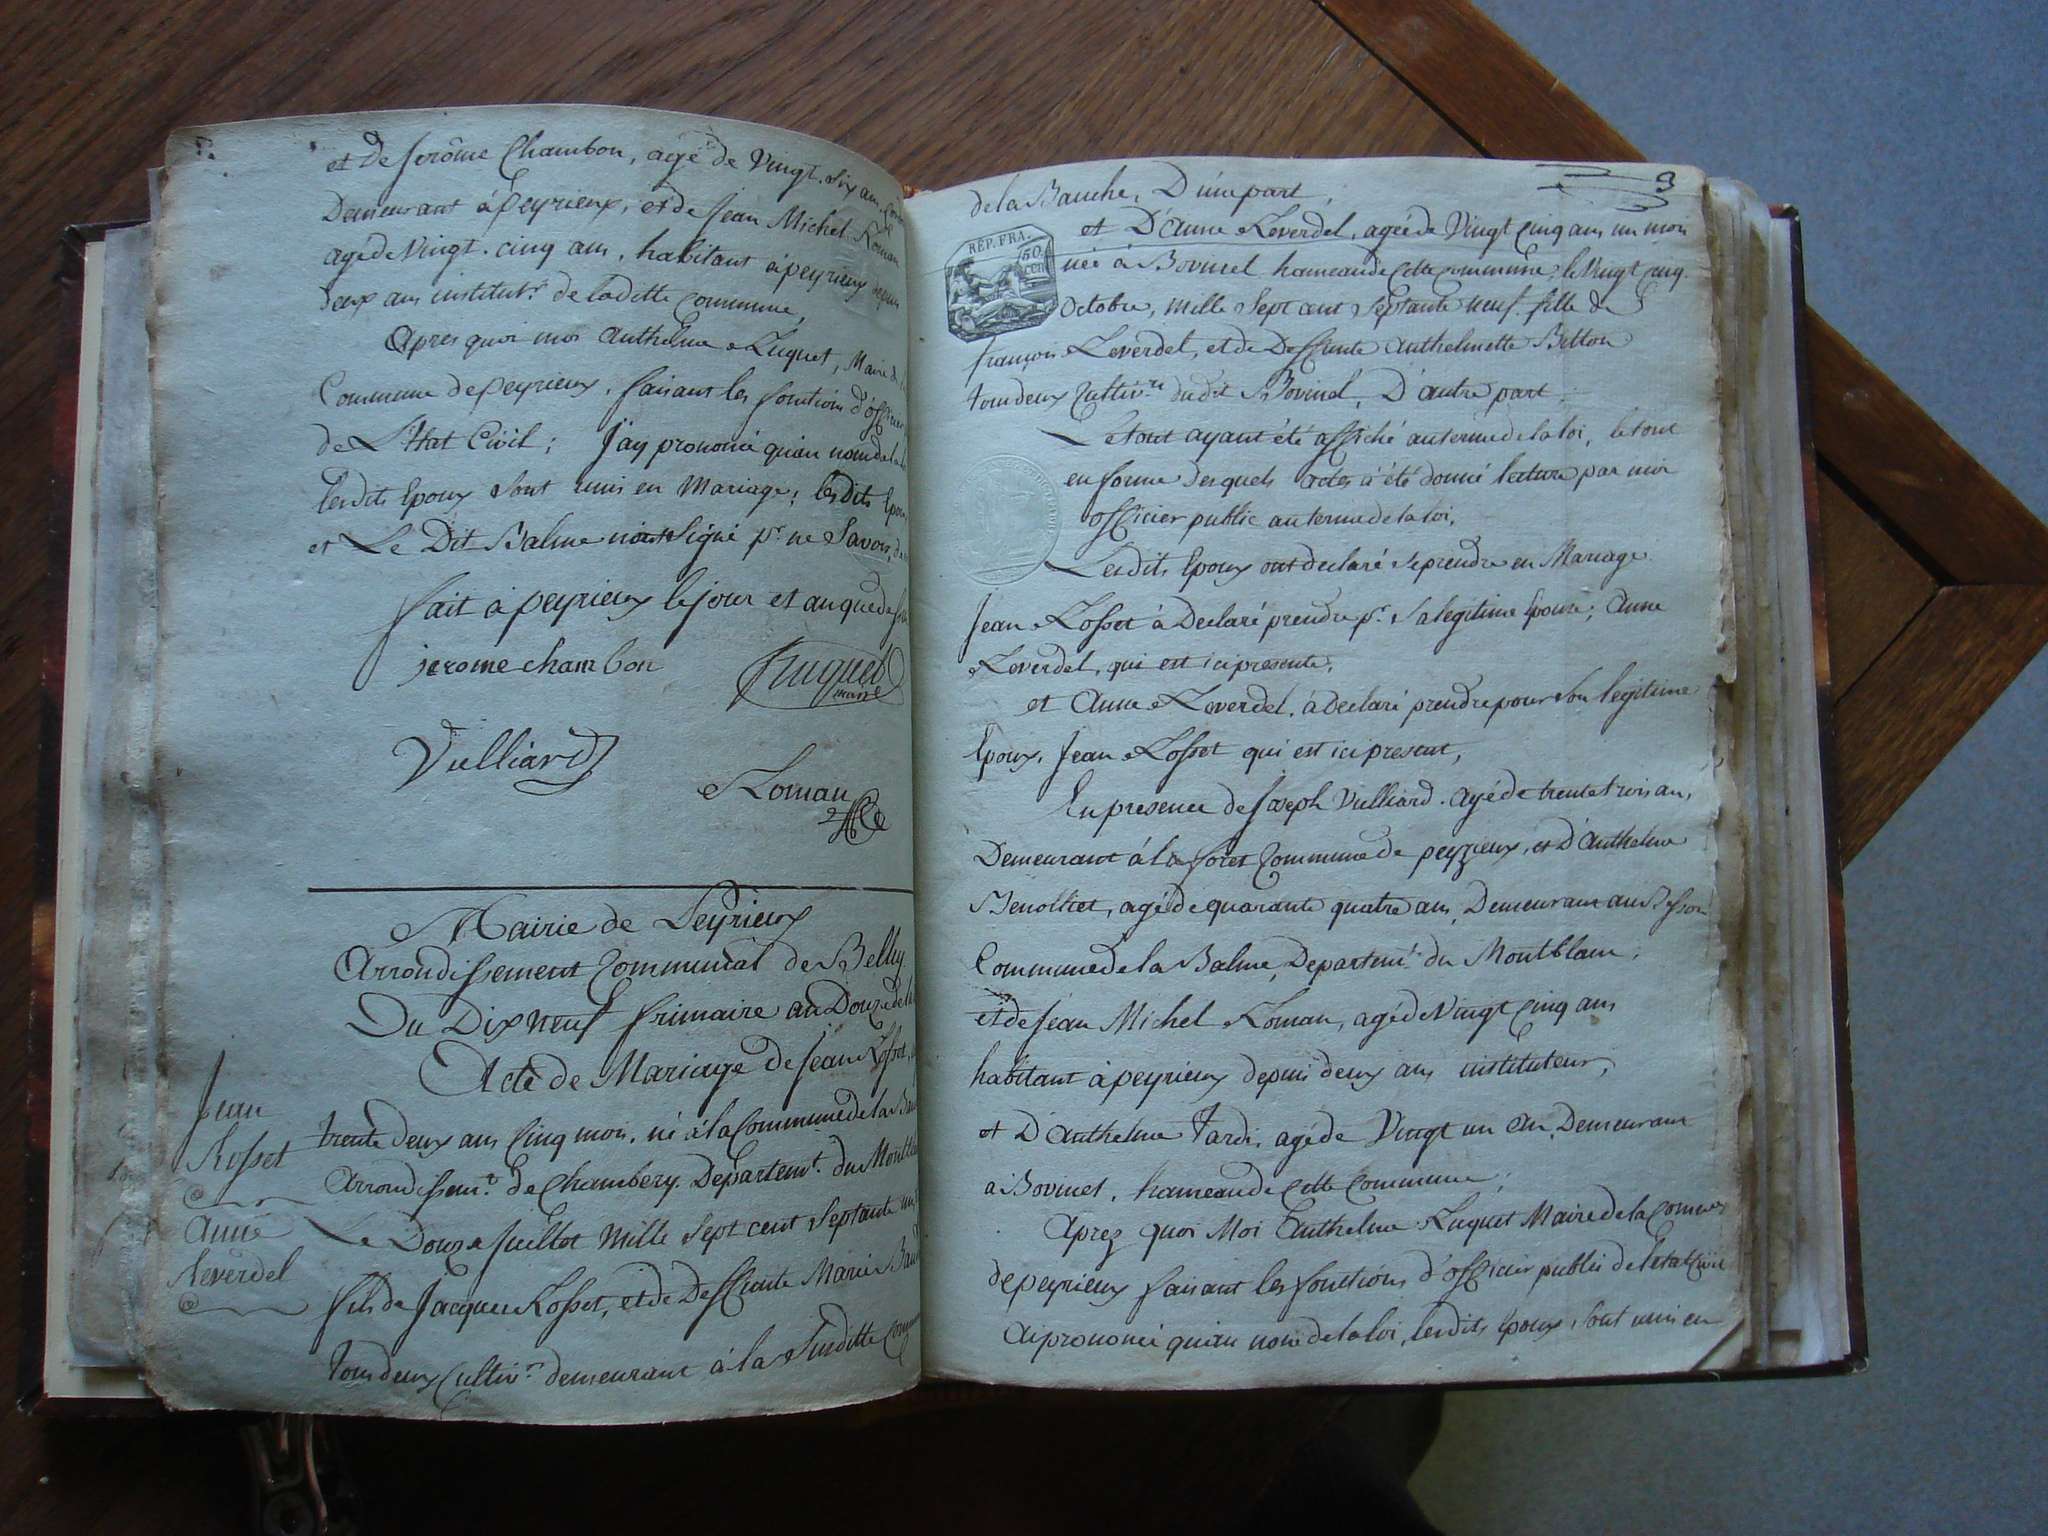 et de Jerôme Chambon, agé de Vingt. Six ans,
Demeurant à peyrieux, et de Jean Michel Roman
agé de Vingt. cinq ans, habitant à peyrieux depuis
deux ans institutr. de la ditte Commune,
Apres quoi moi Anthelme Luquet, Maire de la
Commune de peyrieux, faisant les fonctions d'officier
de L'Etat Civil; J'ay prononcé qu'au nom de la loi
lesdits Epoux sont unis en Mariage; lesdits Epoux
et Le Dit Balme n'ont Signé pr. ne Savoir,
fait à peyrieux le jour et an que dessus
jerome chambon
Luquet
maire
Vulliard
Roman
Mairie de Peyrieux
Arrondissement Communal de Belley
Du Dix neuf frimaire an Douze de la
Acte de Mariage de Jean Rosset,
Jean
Rosset
Anne
Reverdel
trente deux ans Cinq mois, né à la Commune de la Bauche
Arrondissemt. de Chambery. Departemt. du Montblanc
Le Douze Juillet Mille Sept cent Septante un
fils de Jacques Rosset, et de Deffunte Marie
tous deux Cultivrs. demeurant à la Suditte Commune
9
de la Bauche, D'une part,
REP. FRA.
50
cen
et D'Anne Reverdel, agée de Vingt Cinq ans un mois
née à Bovinel hameau de Cette Commune, le Vingt Cinq
Octobre, mille Sept cent Septante neuf. fille de
françois Reverdel, et de Deffunte Anthelmette Bitton
tous deux Cultivrs. du dit Bovinel, D'autre part.
Le tout ayant été affiché au terme de la loi, le tout
en forme desquels actes à été donné lecture par moi
officier public au terme de la loi,
Lesdits Epoux ont declaré se prendre en Mariage
Jean Rosset à Declaré prendre pr. Sa legitime Epouse, Anne
Reverdel, qui est ici presente,
et Anne Reverdel, à declaré prendre pour Son legitime
Epoux, Jean Rosset qui est ici present,
En presence de Joseph Vulliard. agé de trente trois ans,
Demeurant à la foret Commune de peyrieux, et D'Anthelme
Benollict, agé de quarante quatre ans, Demeurant au Besson
Commune de la Balme, Departemt. du Montblanc,
et de Jean Michel Roman, agé de Vingt Cinq ans
habitant à peyrieux depuis deux ans instituteur,
et D'Anthelme Tardi, agé de Vingt un an, Demeurant
à Bovinel, hameau de Cette Commune,
Aprez quoi Moi Anthelme Luquet Maire de la Commune
de peyrieux faisant les fonctions d'officier public de l'etat Civil
Ai prononcé qu'au nom de la loi, lesdits Epoux, Sont unis en